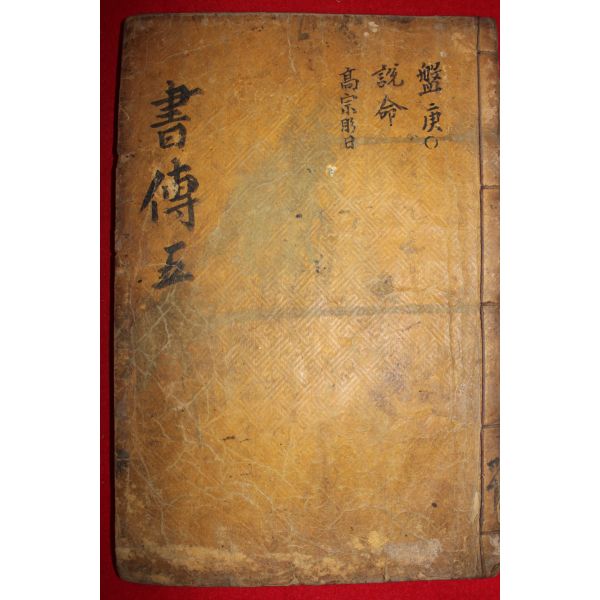 盤庚○
説命
高宗肜日
書傳 五